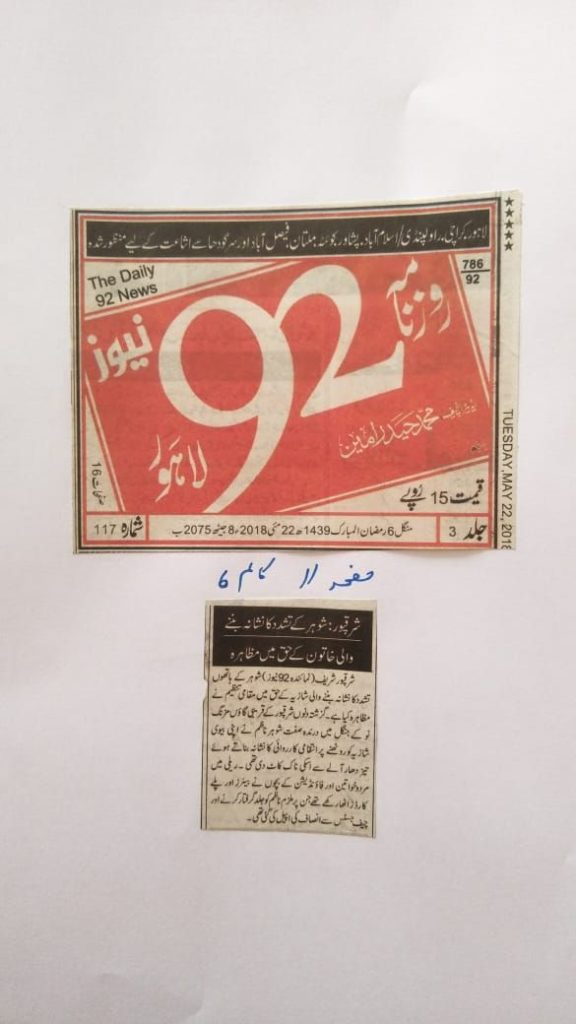 لاہور، کراچی، راولپنڈی/اسلام آباد، پشاور، کوئٹہ، ملتان، فیصل آباد اور سرگودھا سے اشاعت کے لیے منظور شدہ
★★★★★
The Daily
92 News
786
92
روزنامہ
92
نیوز
لاہور
محمد حیدر امین
صفحات 16
قیمت 15 روپے
جلد 3
منگل 6 رمضان المبارک 1439ھ 22 مئی 2018ء 8 جیٹھ 2075 ب
شمارہ 117
TUESDAY, MAY 22, 2018
صفحہ 11 کالم 6
شرقپور: شوہر کے تشدد کا نشانہ بننے
والی خاتون کے حق میں مظاہرہ
شرقپور شریف (نمائندہ 92 نیوز) شوہر کے ہاتھوں
تشدد کا نشانہ بننے والی شازیہ کے حق میں مقامی تنظیم نے
مظاہرہ کیا ہے۔ گزشتہ دنوں شرقپور کے قریبی گاؤں مزنگ
نو کے جنگل میں درندہ صفت شوہر ناظم نے اپنی بیوی
شازیہ کو روٹھنے پر انتقامی کارروائی کا نشانہ بناتے ہوئے
تیز دھار آلے سے اسکی ناک کاٹ دی تھی۔ ریلی میں
مرد و خواتین اور فاؤنڈیشن کے بچوں نے بینرز اور پلے
کارڈز اٹھا رکھے تھے جن پر ملزم ناظم کو جلد گرفتار کرنے اور
چیف جسٹس سے انصاف کی اپیل کی گئی تھی۔